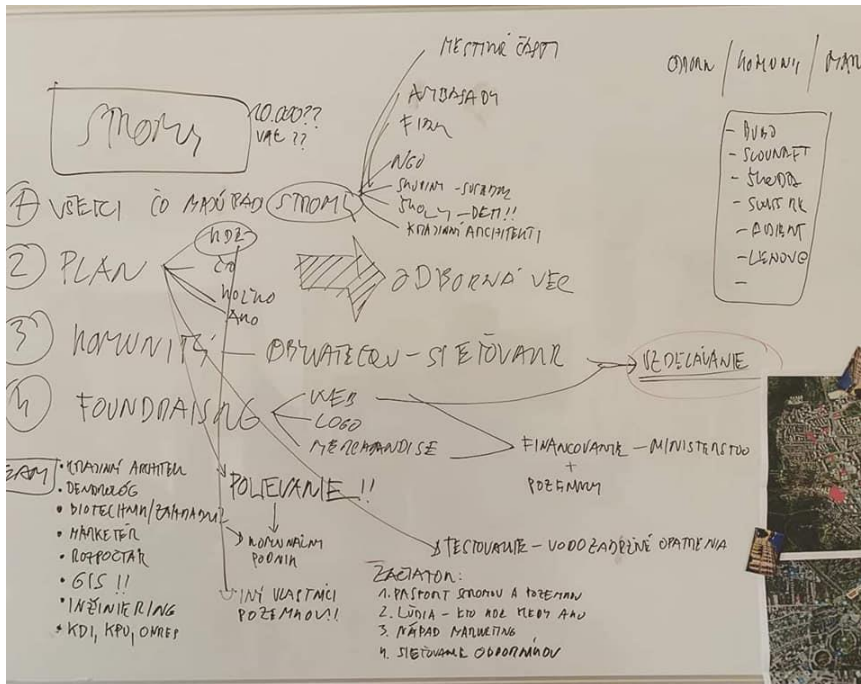 STROMY
10.000??
VIAC ??
MESTSKÉ ČASTI
AMBASADY
FIRMY
NGO
ŠKOLY - DETI!!
KRAJINNÍ ARCHITEKTI
1 VŠETCI ČO MAJÚ RAD STROMY
KOMUNIT /
- BUBO
- SLOVNAFT
- ŠKODA
- SWISS RE
- ADIENT
- LENOVO
-
2 PLÁN
KDE
ČO
KOĽKO
AKO
ODBORNÁ VEC
3 KOMUNITY - OBYVATEĽOV - SIEŤOVANIE
VZDELÁVANIE
4 FOUNDRAISING
WEB
LOGO
MERCHANDISE
FINANCOVANIE - MINISTERSTVO
+
POZEMKY
TEAM
• KRAJINNÝ ARCHITEKT
• DENDROLÓG
• MARKETÉR
• ROZPOČTÁR
• GIS !!
• INŽINIERING
• KDI, KPÚ,
POLIEVANIE !!
KOMUNÁLNY
PODNIK
INÝ VLASTNÍCI
POZEMKOV!!
TESTOVANIE - VODOZADRŽNÉ OPATRENIA
ZAČIATOK:
1. PASPORT STROMOV A POZEMKOV
2. ĽUDIA - KTO KDE KEDY AKO
3. NÁPAD MARKETING
4. SIEŤOVANIE ODBORNÍKOV